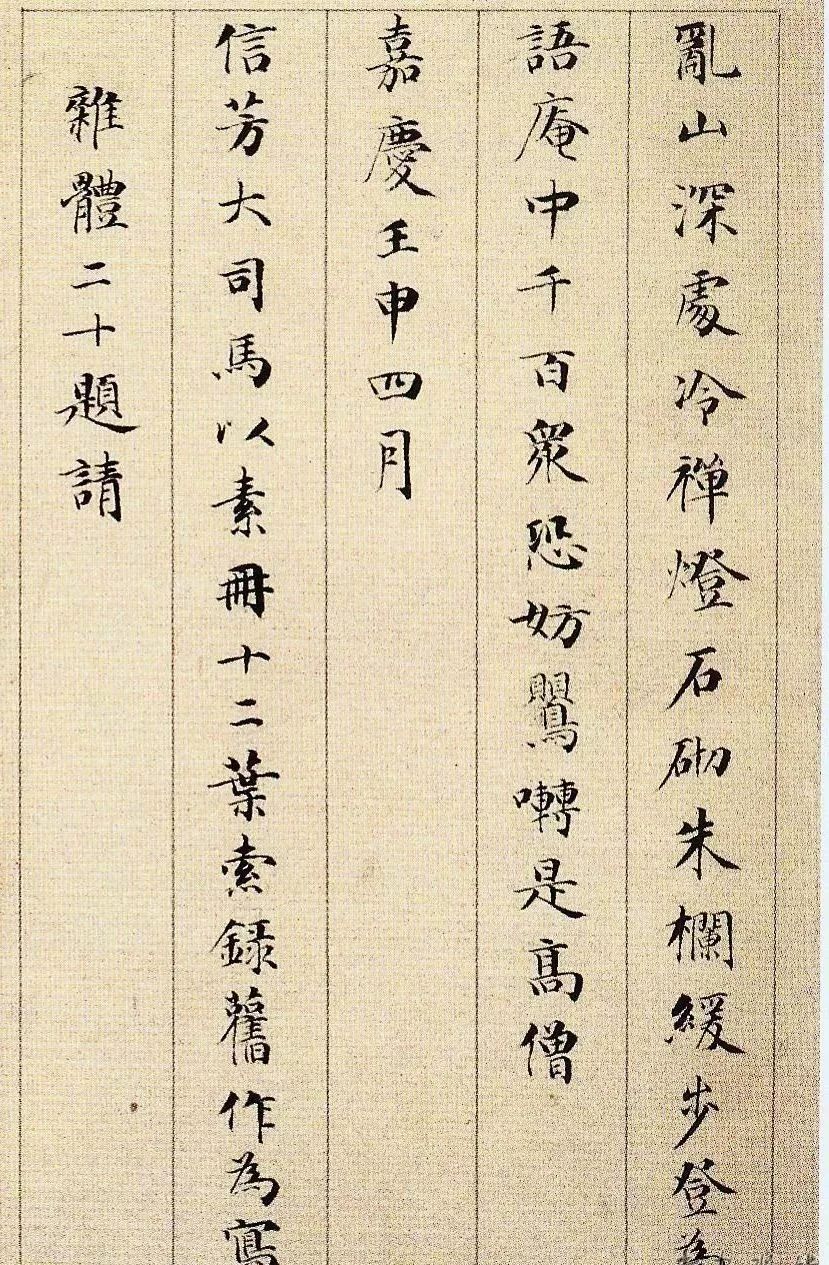 亂山深處冷禪燈石砌朱欄緩步登為
語庵中千百衆恐妨鸎囀是高僧
嘉慶壬申四月
信芳大司馬以素冊十二葉索録舊作為寫
雜體二十題請